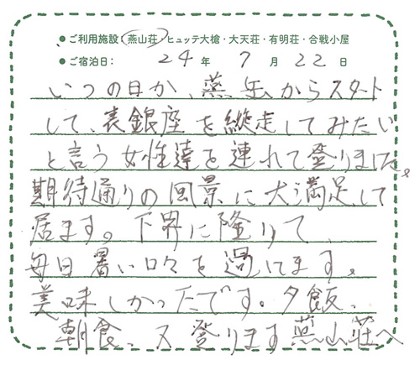 ● ご利用施設：燕山荘・ヒュッテ大槍・大天荘・有明荘・合戦小屋
● ご宿泊日： 24 年 7 月 22 日
いつの日か、燕岳からスタート
して、表銀座を縦走してみたい
と言う女性達を連れて登りました。
期待通りの風景に大満足して
居ます。下界に降りて
毎日暑い日々を過してます。
美味しかったです。夕飯、
朝食、又登ります燕山荘へ